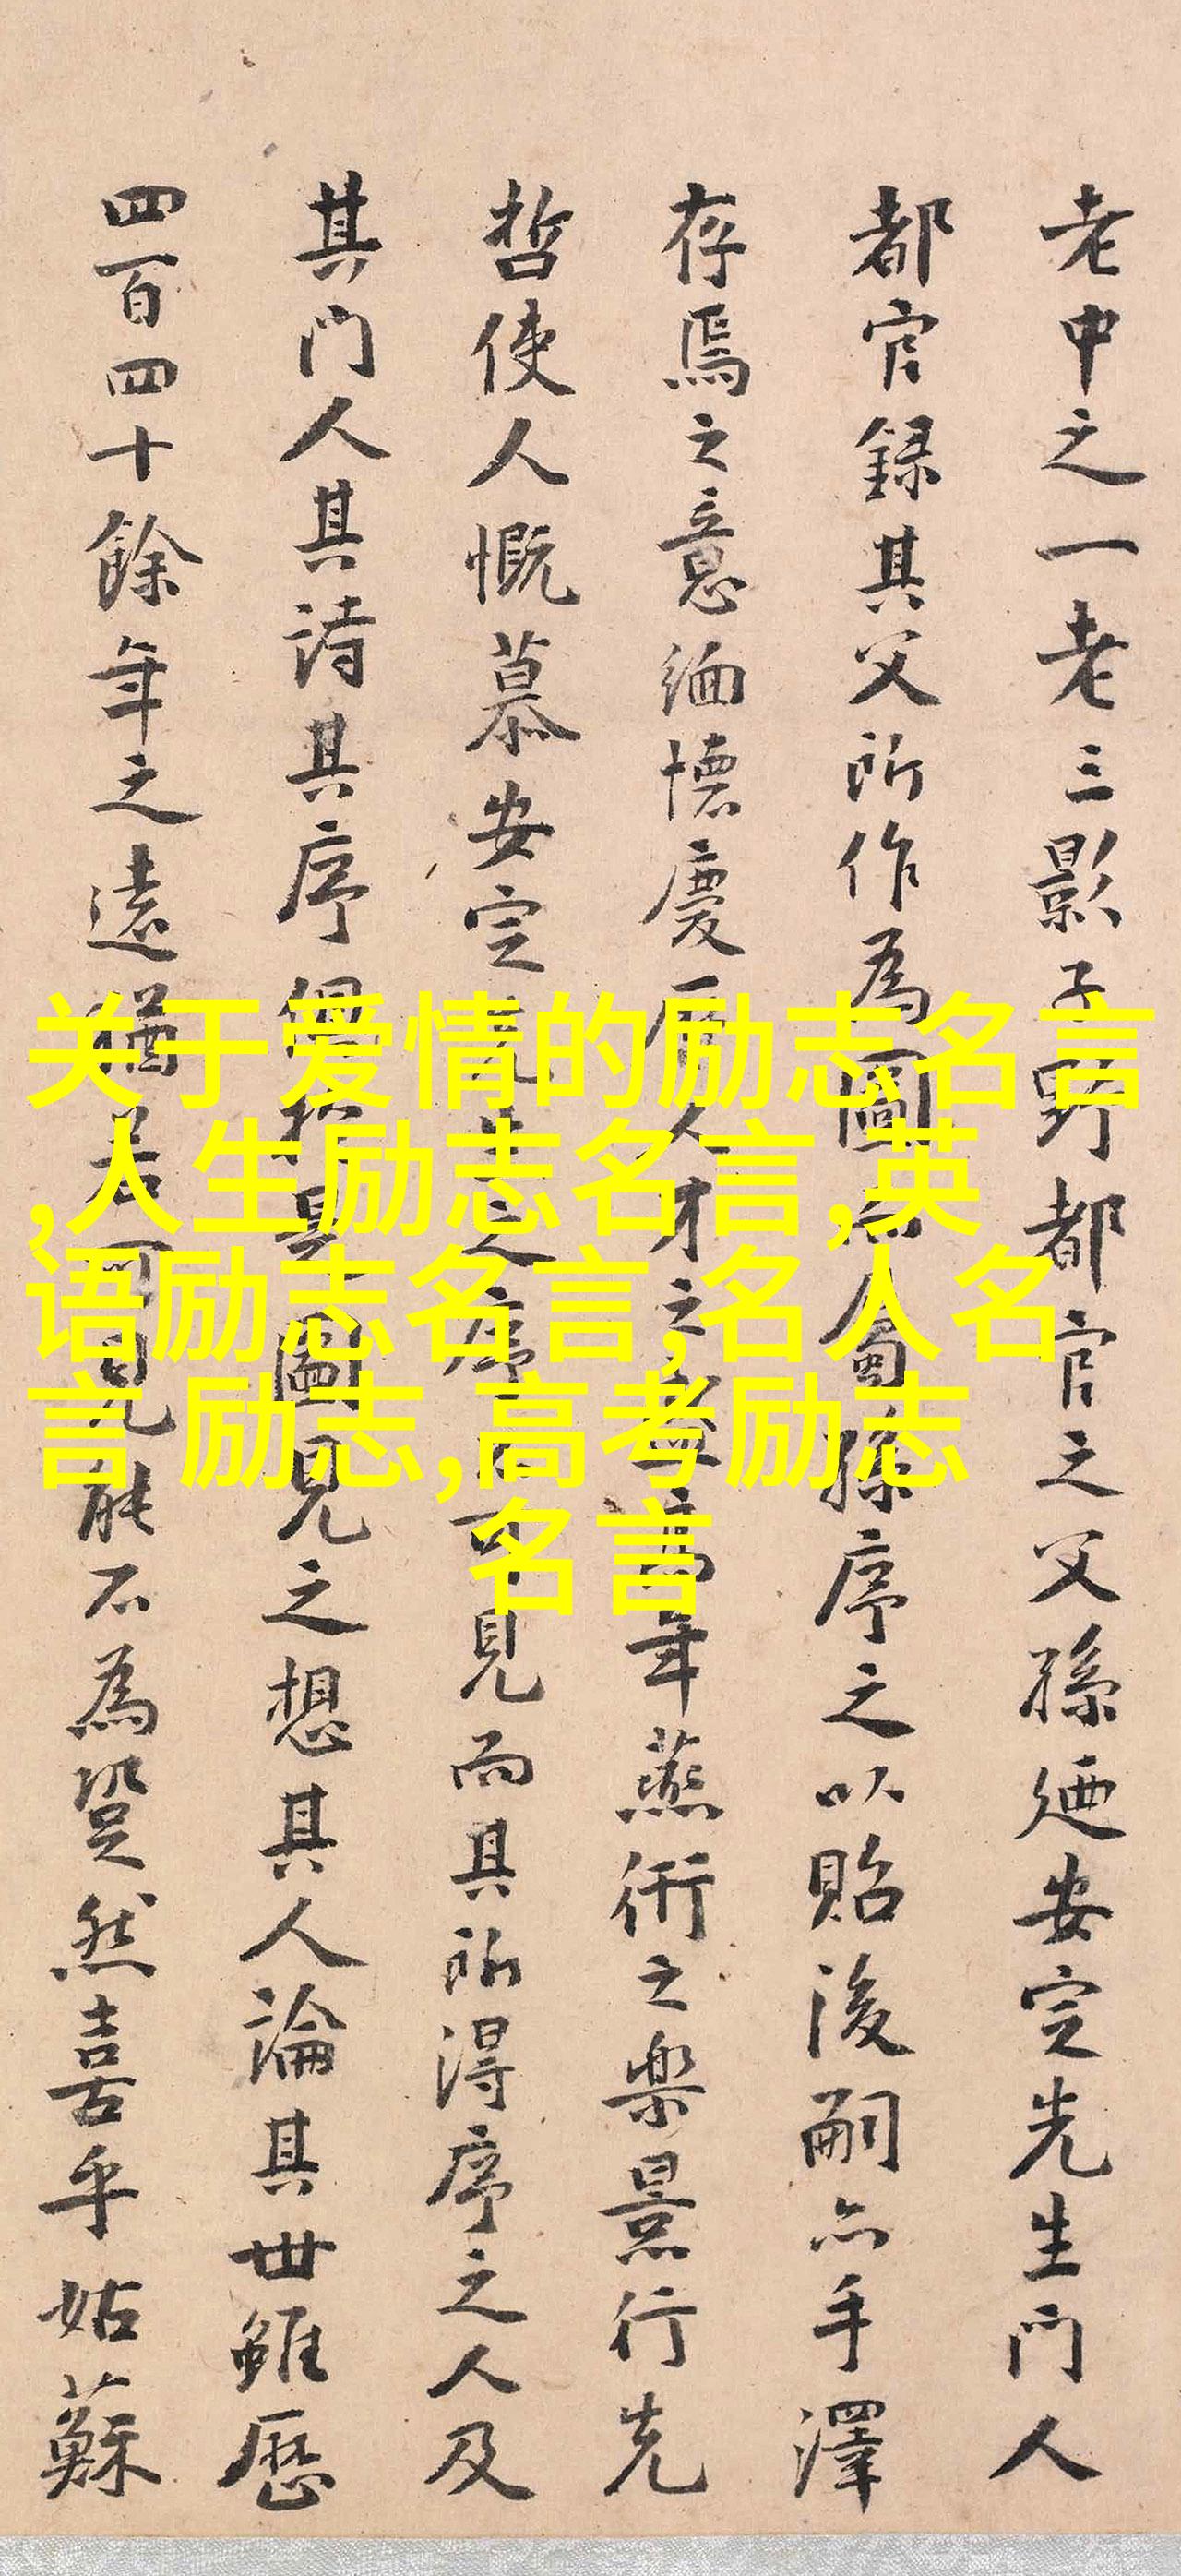 老中之一老三影子野都官之父孫廼安定先生門人
都官録其父所作為圖蜀孫序之以貽後嗣亦手澤
存焉之意緬懷慶厤人才之盛年燕衎之樂景行先
哲使人慨慕安定先生之序不可見而其所得序之人及
其門人其詩其序是圖見之想其人論其世雖歷
四百四十餘年之遠猶若可見能不為跫然喜乎姑蘇
关于爱情的励志名言
,人生励志名言,英
语励志名言,名人名
言 励志,高考励志
名言